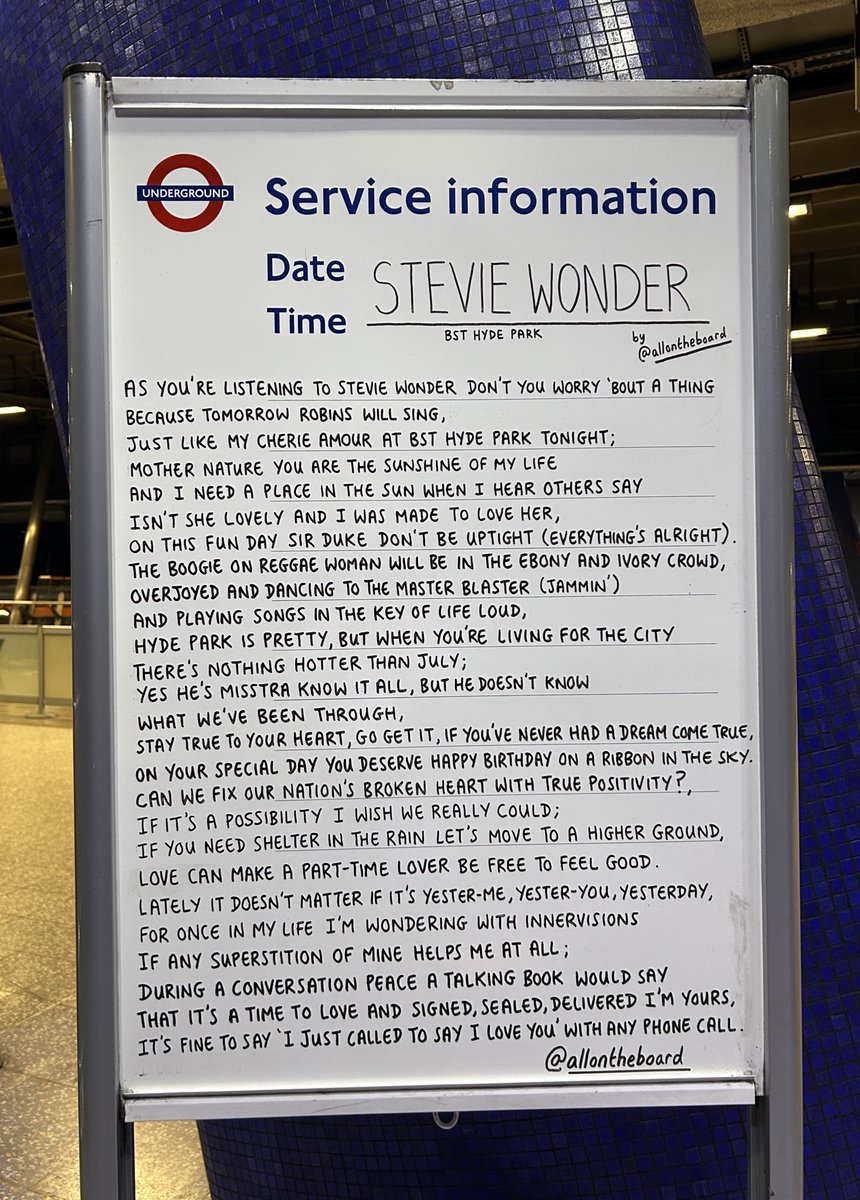 UNDERGROUND
Service information
Date
Time
STEVIE WONDER
BST HYDE PARK
by
@allontheboard
AS YOU'RE LISTENING TO STEVIE WONDER DON'T YOU WORRY 'BOUT A THING
BECAUSE TOMORROW ROBINS WILL SING,
JUST LIKE MY CHERIE AMOUR AT BST HYDE PARK TONIGHT;
MOTHER NATURE YOU ARE THE SUNSHINE OF MY LIFE
AND I NEED A PLACE IN THE SUN WHEN I HEAR OTHERS SAY
ISN'T SHE LOVELY AND I WAS MADE TO LOVE HER,
ON THIS FUN DAY SIR DUKE DON'T BE UPTIGHT (EVERYTHING'S ALRIGHT).
THE BOOGIE ON REGGAE WOMAN WILL BE IN THE EBONY AND IVORY CROWD,
OVERJOYED AND DANCING TO THE MASTER BLASTER (JAMMIN')
AND PLAYING SONGS IN THE KEY OF LIFE LOUD,
HYDE PARK IS PRETTY, BUT WHEN YOU'RE LIVING FOR THE CITY
THERE'S NOTHING HOTTER THAN JULY;
YES HE'S MISSTRA KNOW IT ALL, BUT HE DOESN'T KNOW
WHAT WE'VE BEEN THROUGH,
STAY TRUE TO YOUR HEART, GO GET IT, IF YOU'VE NEVER HAD A DREAM COME TRUE,
ON YOUR SPECIAL DAY YOU DESERVE HAPPY BIRTHDAY ON A RIBBON IN THE SKY.
CAN WE FIX OUR NATION'S BROKEN HEART WITH TRUE POSITIVITY?,
IF IT'S A POSSIBILITY I WISH WE REALLY COULD;
IF YOU NEED SHELTER IN THE RAIN LET'S MOVE TO A HIGHER GROUND,
LOVE CAN MAKE A PART-TIME LOVER BE FREE TO FEEL GOOD.
LATELY IT DOESN'T MATTER IF IT'S YESTER-ME, YESTER-YOU, YESTERDAY,
FOR ONCE IN MY LIFE I'M WONDERING WITH INNERVISIONS
IF ANY SUPERSTITION OF MINE HELPS ME AT ALL;
DURING A CONVERSATION PEACE A TALKING BOOK WOULD SAY
THAT IT'S A TIME TO LOVE AND SIGNED, SEALED, DELIVERED I'M YOURS,
IT'S FINE TO SAY 'I JUST CALLED TO SAY I LOVE YOU' WITH ANY PHONE CALL.
@allontheboard